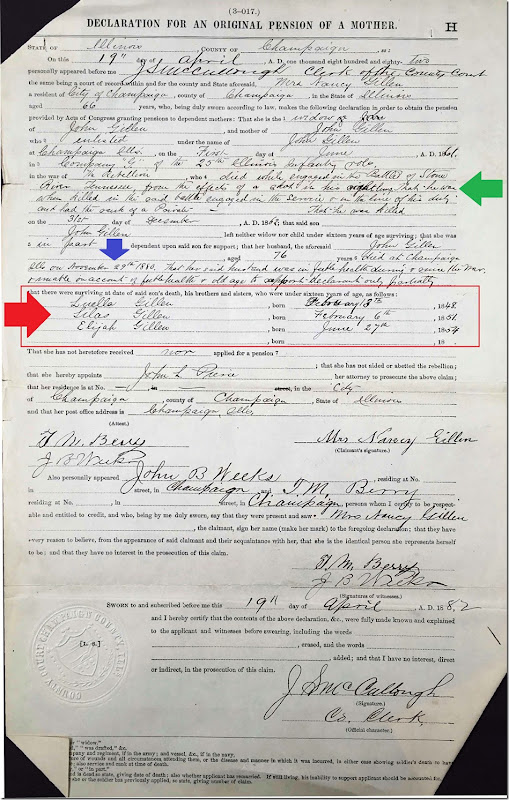 (3-017.)
DECLARATION FOR AN ORIGINAL PENSION OF A MOTHER.
H
STATE OF Illinois, COUNTY OF Champaign, ss:
On this 19th day of April A. D. one thousand eight hundred and eighty-Two
personally appeared before me J S McCullough Clerk of the County Court
the same being a court of record within and for the county and State aforesaid, Mrs Nancy Gillen
a resident of City of Champaign, county of Champaign, in the State of Illinois
aged 66 years, who, being duly sworn according to law, makes the following declaration in order to obtain the pension
provided by Acts of Congress granting pensions to dependent mothers: That she is the widow
of John Gillen, and mother of John Gillen
who enlisted under the name of John Gillen
at Champaign Ills. on the First day of June, A. D. 1861,
in Company "G" of the 25th Illinois Infantry vols.
in the war of the Rebellion, who died while engaged in the Battle of Stone
River Tennessee, from the effects of a shot in his That he was
when killed in the and engaged in the service & in the line of his duty
and had the rank of a Private That he was killed
on the 31st day of December, A. D. 1862; that said son
John Gillen left neither widow nor child under sixteen years of age surviving; that she was
in part dependent upon said son for support; that her husband, the aforesaid John Gillen
, aged 76 years died at Champaign
Ills on November 29th 1880. That her said husband was in feble health during & since the War,
& unable on account of feble health & old age to support declarant only partially
that there were surviving at date of said son's death, his brothers and sisters, who were under sixteen years of age, as follows:
Luella Gillen, born February 13th, 1848.
Silas Gillen, born February 6th, 1851
Elijah Gillen, born June 27th, 1854
, born , 18
That she has not heretofore received nor applied for a pension
; that she has not aided or abetted the rebellion;
that she hereby appoints John L Pierce her attorney to prosecute the above claim;
that her residence is at No. street, in the City
of Champaign, county of Champaign, State of Illinois
and that her post office address is Champaign Ills,
(Attest.)
T. M. Berry
J B Weeks
Mrs Nancy Gillen
(Claimant's signature.)
Also personally appeared John B Weeks, residing at No.
in street, in Champaign and T. M. Berry
residing at No. , in street, in Champaign, persons whom I certify to be respect-
able and entitled to credit, and who, being by me duly sworn, say that they were present and saw Mrs Nancy Gillen
, the claimant, sign her name (make her mark) to the foregoing declaration; that they
have every reason to believe, from the appearance of said claimant and their acquaintance with her, that she is the identical person she represents herself
to be; and that they have no interest in the prosecution of this claim.
T. M. Berry
J B Weeks
(Signatures of witnesses.)
SWORN to and subscribed before me this 19th day of April, A. D. 1882
and I hereby certify that the contents of the above declaration, &c., were fully made known and explained
to the applicant and witnesses before swearing, including the words
, erased, and the words
[L. S.] , added; and that I have no interest, direct
or indirect, in the prosecution of this claim.
J. S McCullough
(Signature.)
Co. Clerk.
(Official character.)
COUNTY COURT CHAMPAIGN COUNTY, ILLS.
"widow."
"was drafted," &c.
company and regiment, if in the army; and vessel, &c., if in the navy.
"or "in part."